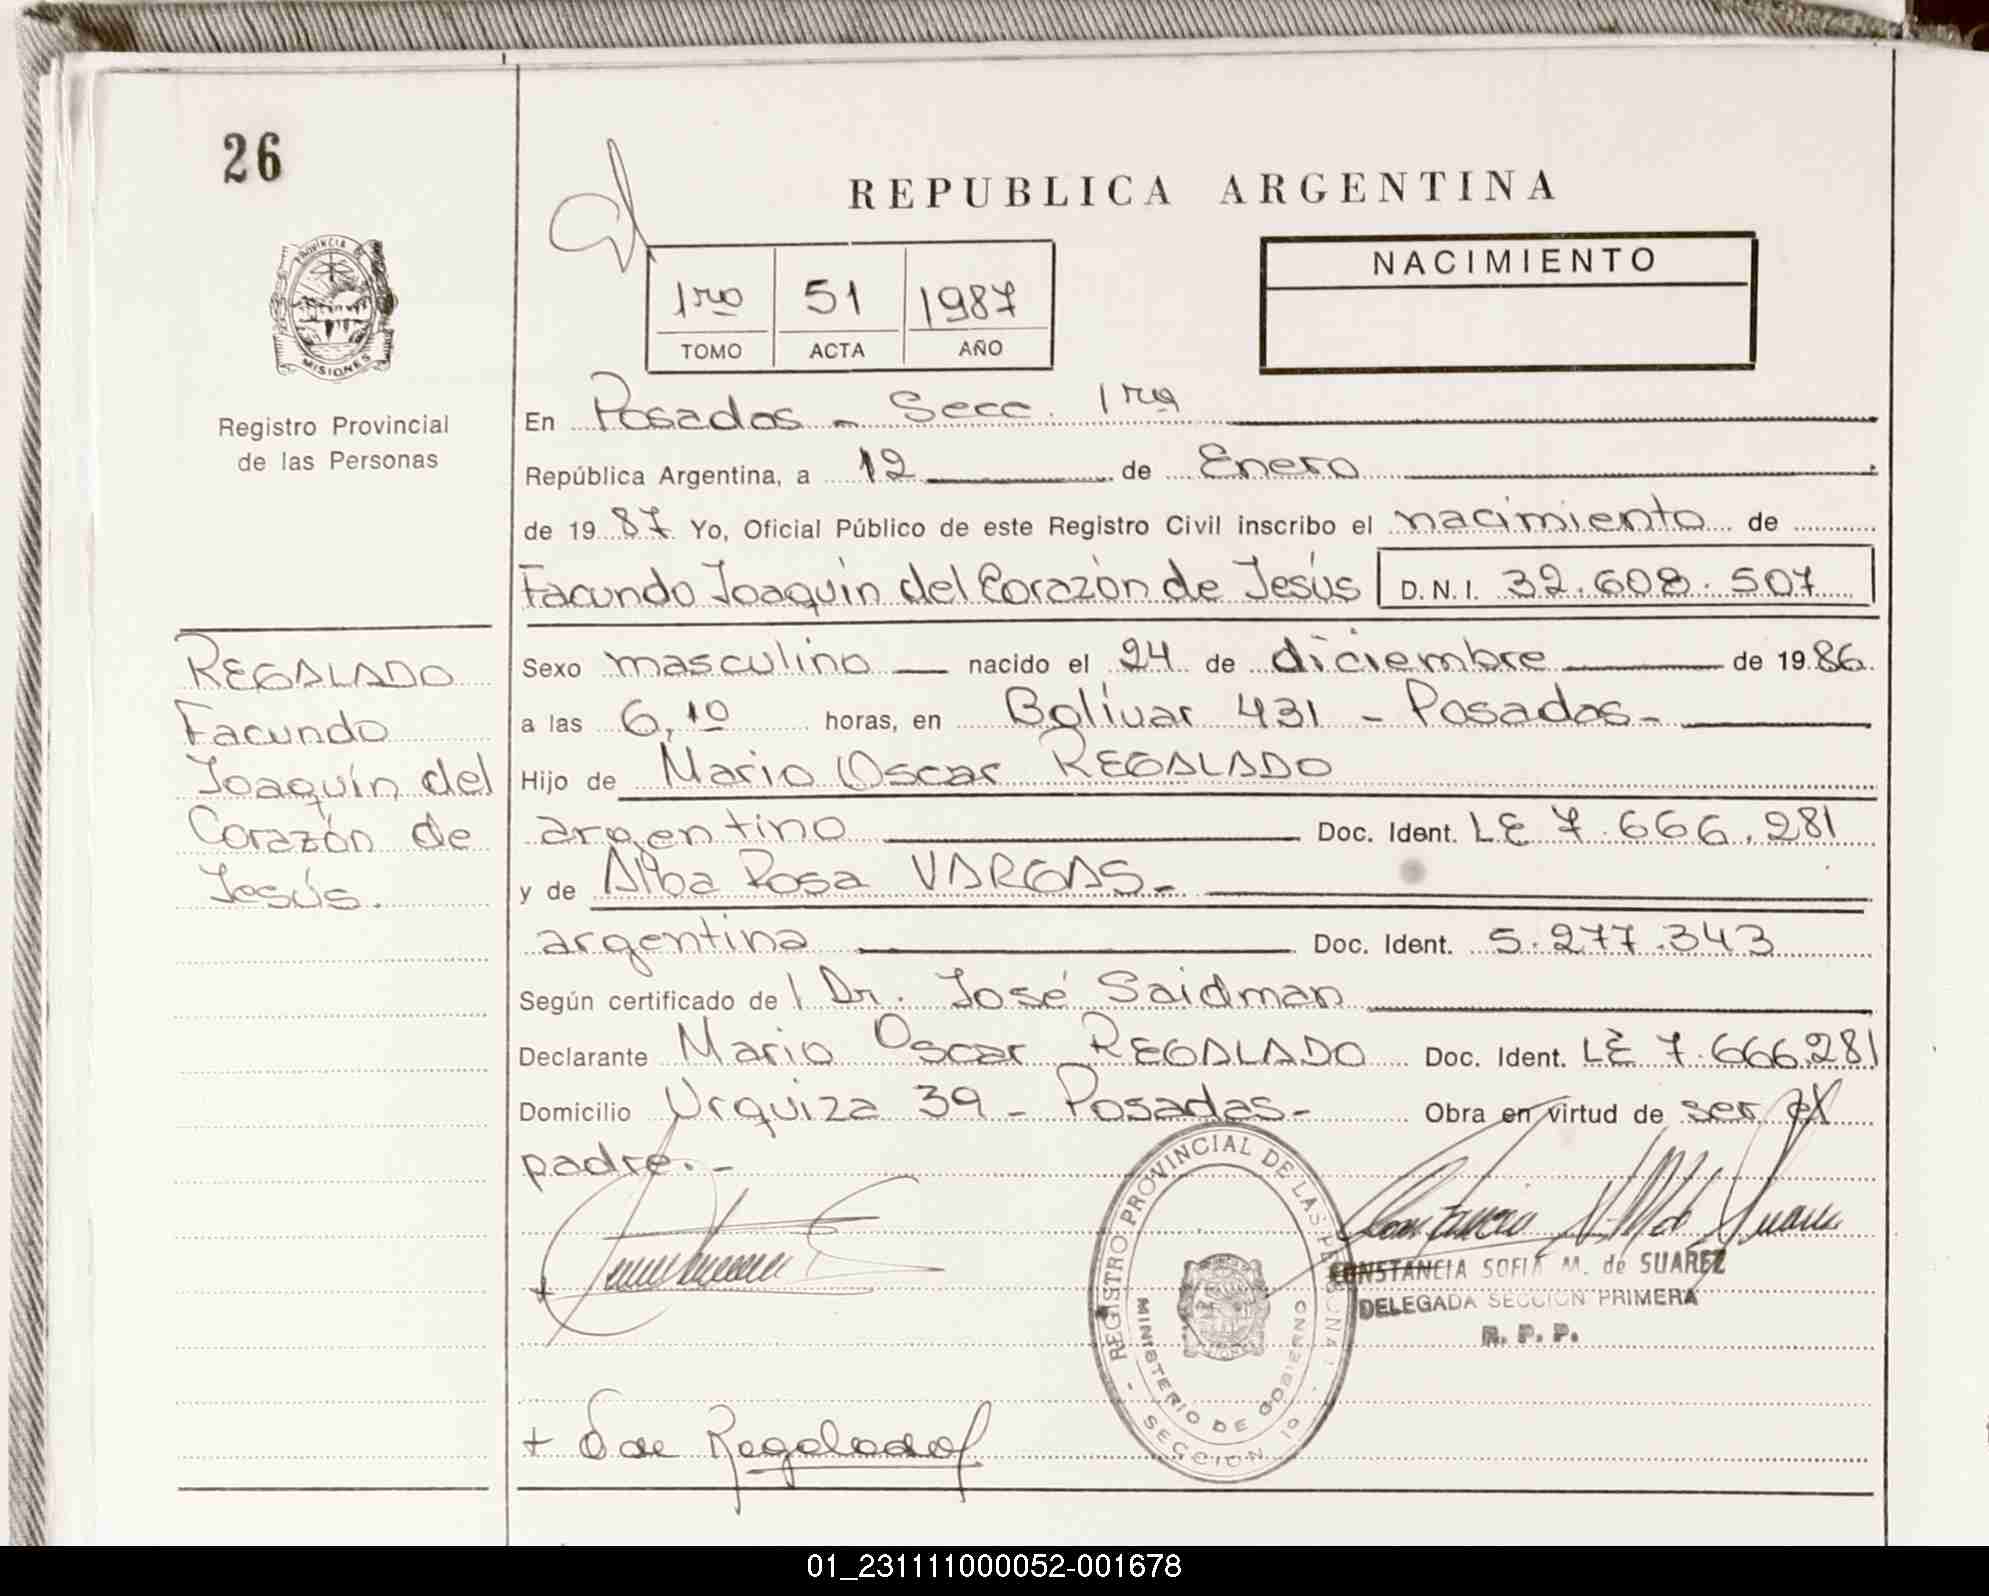 26
REPUBLICA ARGENTINA
NACIMIENTO
1ro 51 1987
TOMO ACTA AÑO
PROVINCIA DE
MISIONES
Registro Provincial
de las Personas
En Posadas - Secc. 1ra
República Argentina, a 12 de Enero
de 1987 Yo, Oficial Público de este Registro Civil inscribo el nacimiento de
Facundo Joaquín del Corazón de Jesús D.N.I. 32.608.507
REGALADO
Facundo
Joaquín del
Corazón de
Jesús.
Sexo masculino nacido el 24 de diciembre de 1986
a las 6,10 horas, en Bolívar 431 - Posadas-
Hijo de Mario Oscar REGALADO
argentino Doc. Ident. LE 7.666.281
y de Alba Rosa VARGAS-
argentina Doc. Ident. 5.277.343
Según certificado de l Dr. José Saidman
Declarante Mario Oscar REGALADO Doc. Ident. LE 7.666.281
Domicilio Urquiza 39 - Posadas- Obra en virtud de ser el
padre.-
REGISTRO PROVINCIAL DE LAS PERSONAS
MINISTERIO DE GOBIERNO
SECCION 1º
CONSTANCIA SOFIA M. de SUAREZ
DELEGADA SECCION PRIMERA
R. P. P.
+ Regalado
01_231111000052-001678